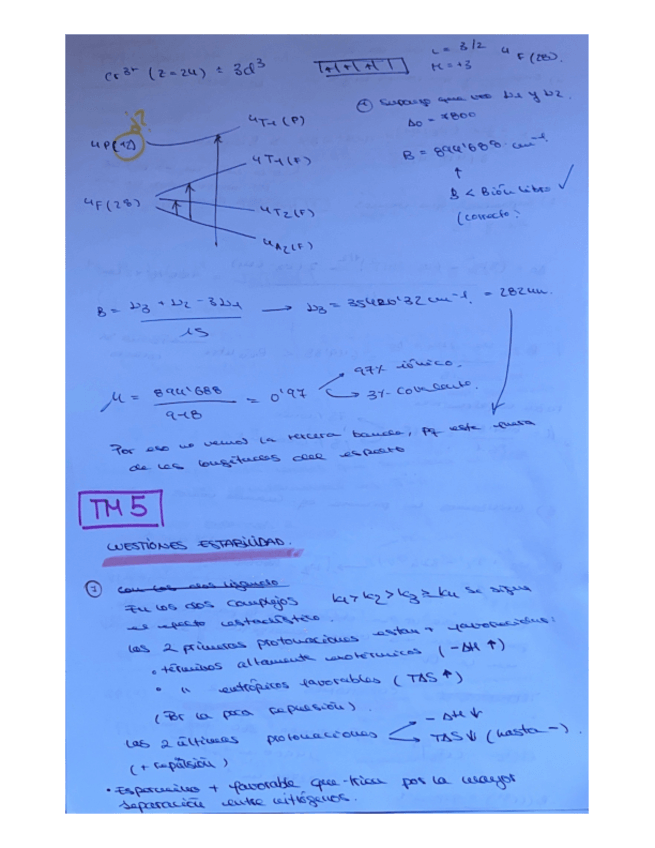 Cr³⁺ (Z=24) = 3d³
L = 3/2 ⁴F(28).
M = +3
① Supongo que veo ν₁ y ν₂.
Δo = 17800
B = 894'688 · cm⁻¹
↑
B < Bión libre ✓
(correcto)
⁴P(12) ⁴T₁(P)
⁴T₁(F)
⁴F(28)
⁴T₂(F)
⁴A₂(F)
B = ν₃ + ν₂ - 3ν₁ / 15 → ν₃ = 35420'32 cm⁻¹ = 282 nm.
μ = 894'688 / 918 = 0'97
97% iónico.
→ 3% covalente.
Por eso no vemos la tercera banda, pq esta fuera
de las longitudes del espectro
TM 5
CUESTIONES ESTABILIDAD.
① con los dos ligando
En los dos complejos K₁ > K₂ > K₃ ≥ K₄ se sigue
el efecto estadístico.
Las 2 primeras protonaciones estan + favorecidas:
• términos altamente exotérmicos (-ΔH ↑)
• " entrópicos favorables (TΔS ↑)
(Por la poca repulsión).
Las 2 últimas protonaciones
- ΔH ↓
TΔS ↓ (hasta -).
(+ repulsión)
• Espermina + favorable que trien por la mayor
separación entre nitrógenos.